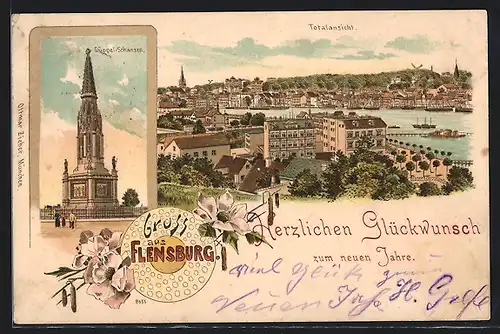 Düppel-Schanzen.
Totalansicht.
Ottmar Zieher, München.
Gruss
aus
FLENSBURG.
Herzlichen Glückwunsch
zum neuen Jahre.
viel Glück zum
Neuen Jahr H.